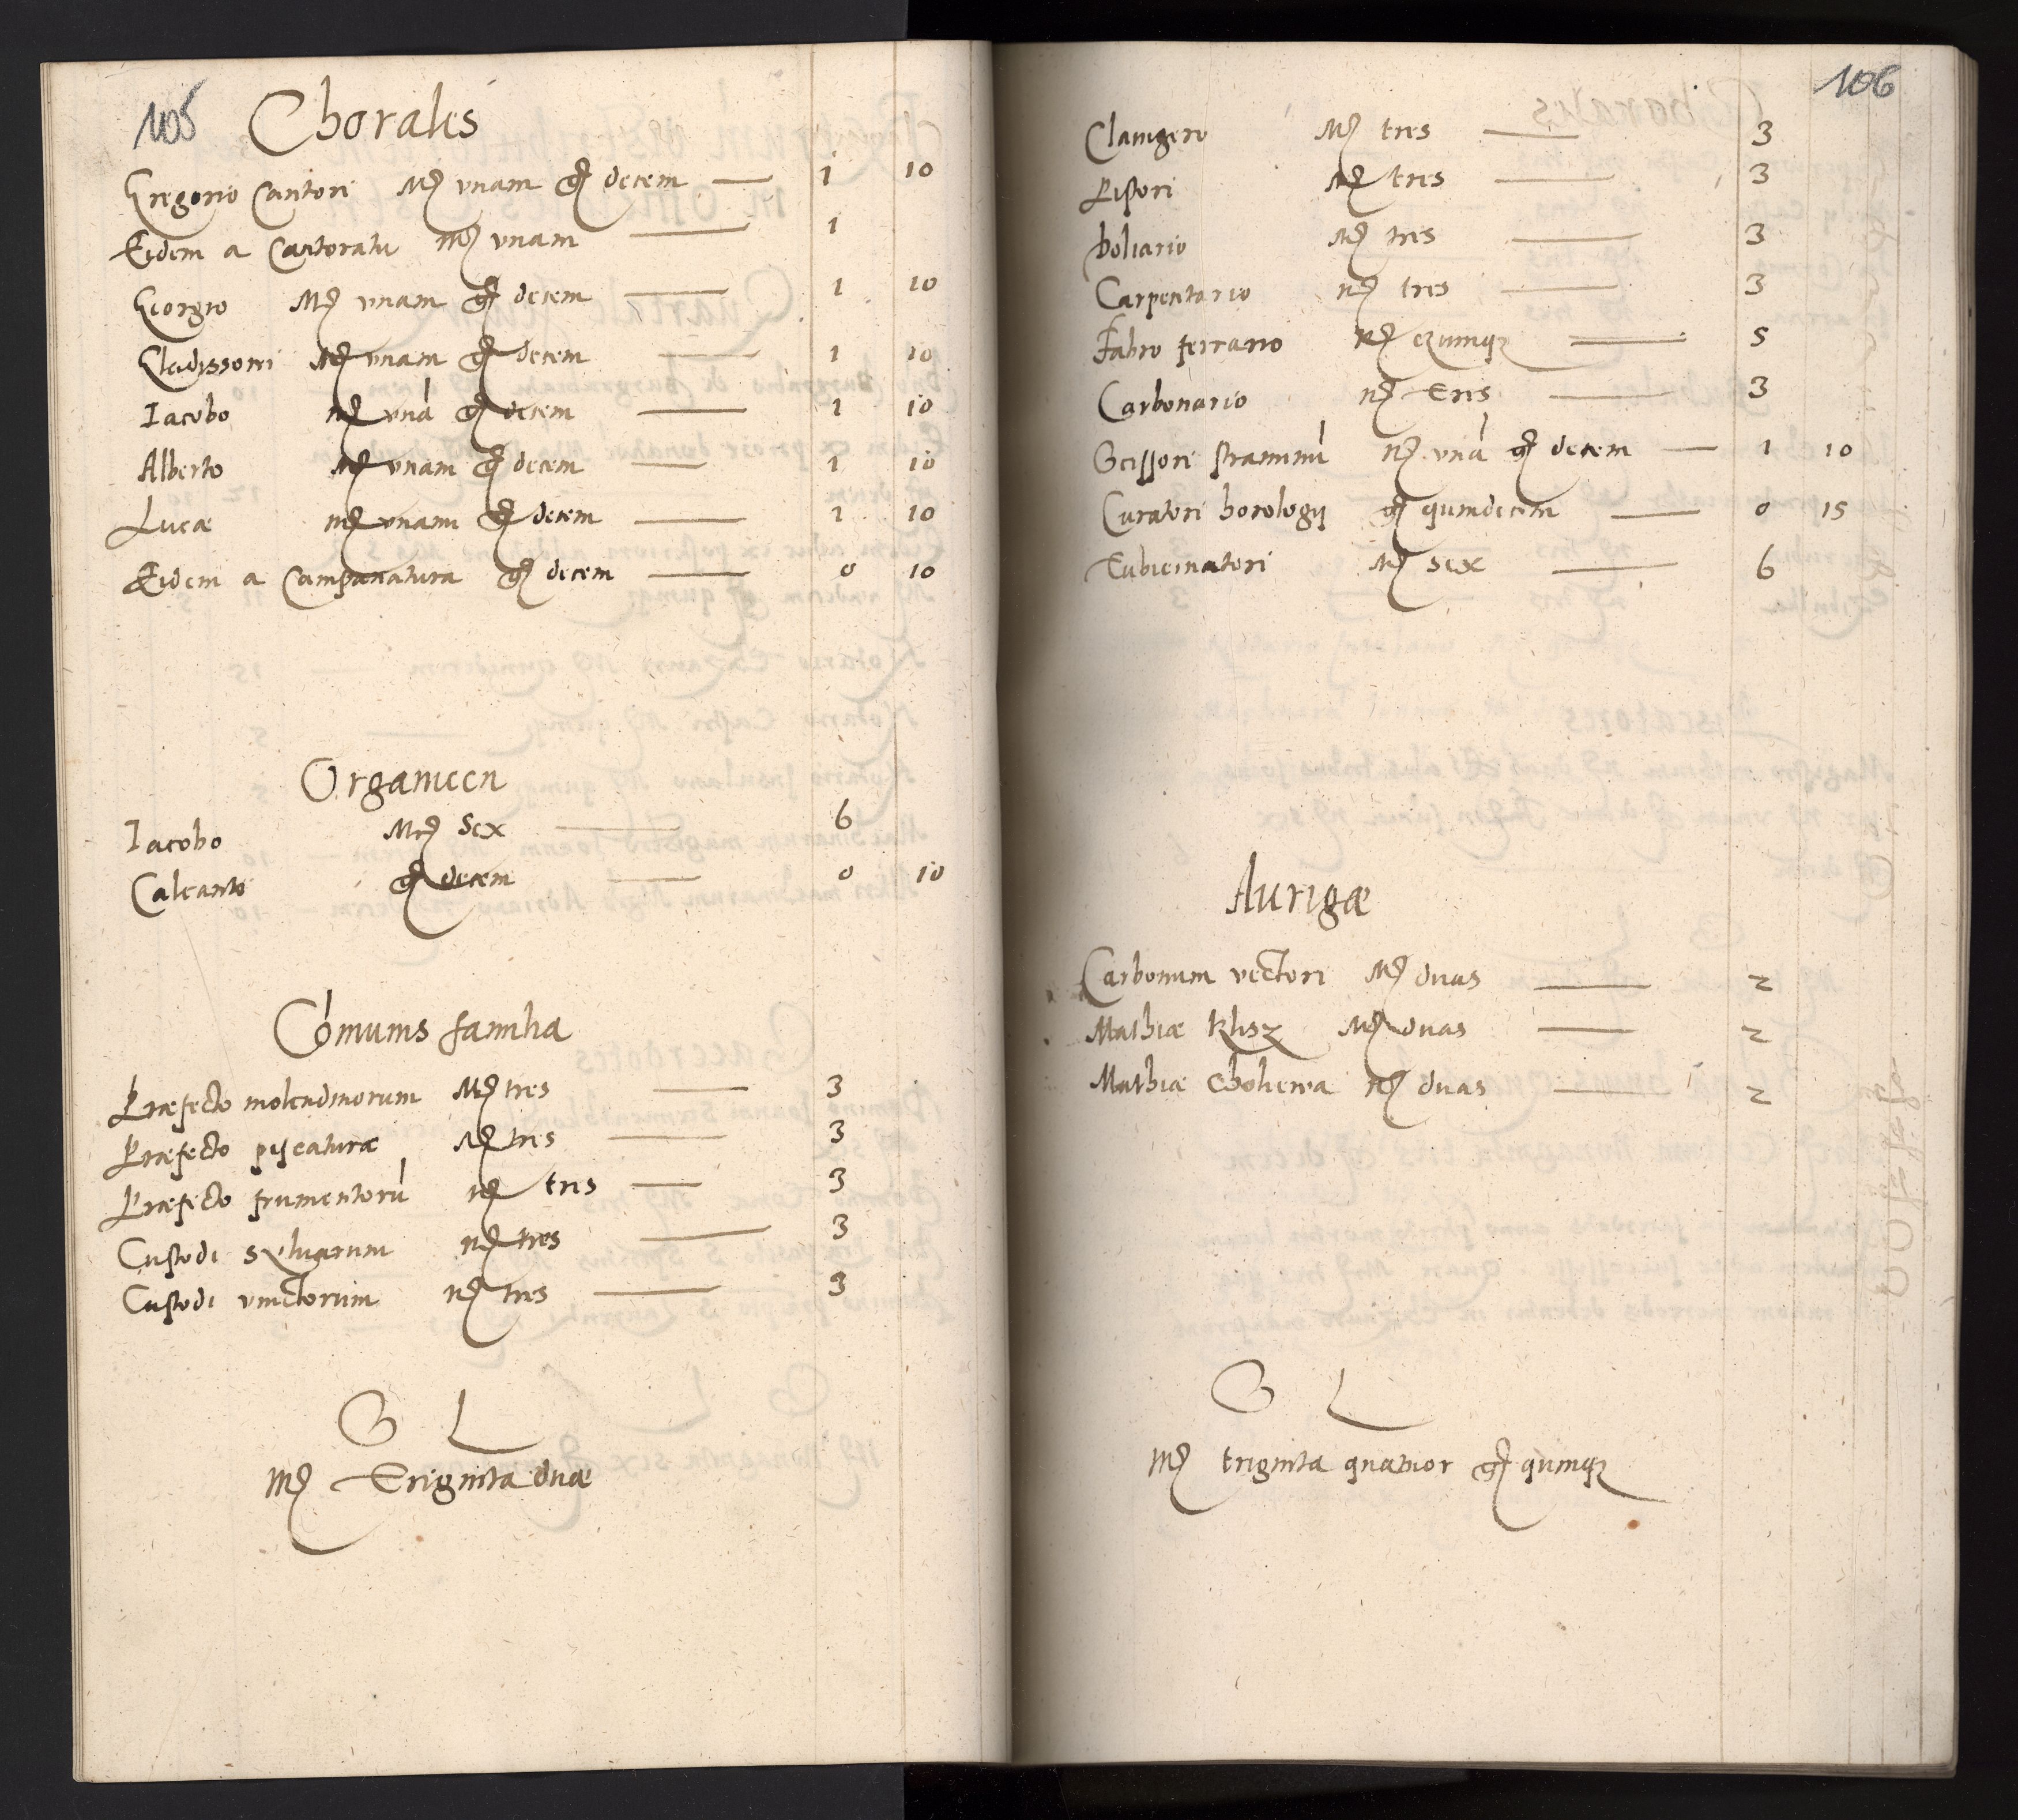 105
Chorales
Gregorio Cantori M unam g decem — 1 10
Eidem a Cantoratu M unam — 1
Georgio M unam g decem — 1 10
M unam g decem — 1 10
Iacobo M unā g decem — 1 10
Alberto M unam g decem — 1 10
Lucæ M unam g decem — 1 10
Eidem a Campanatura g decem — 0 10
Organicen
Iacobo M sex — 6
Calcanti g decem — 0 10
Cōmunis familia
Præfecto molendinorum M tres — 3
Præfecto piscaturæ M tres — 3
Præfecto frumentorū M tres — 3
Custodi sylvarum M tres — 3
Custodi vinctorum M tres — 3
S L
M Triginta duæ
106
Clavigero M tres — 3
Pistori M tres — 3
boliario M tres — 3
Carpentario M tres — 3
Fabro ferrario M quinqz — 5
Carbonario M Tres — 3
Scissori straminū M unā g decem — 1 10
Curatori horologij g quindecim — 0 15
Tubicinatori M sex — 6
Aurigæ
Carbonum vectori M duas — 2
Mathiæ Klisz M duas — 2
Mathiæ M duas — 2
S L
M triginta quatuor g quinqz